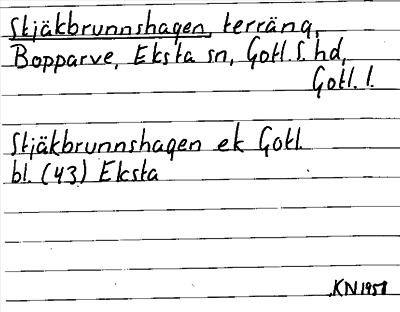 Stjäkbrunnshagen, terräng,
Bopparve, Eksta sn, Gotl. S. hd,
Gotl. l.
Stjäkbrunnshagen ek Gotl.
bl. (43) Eksta
KN 1958